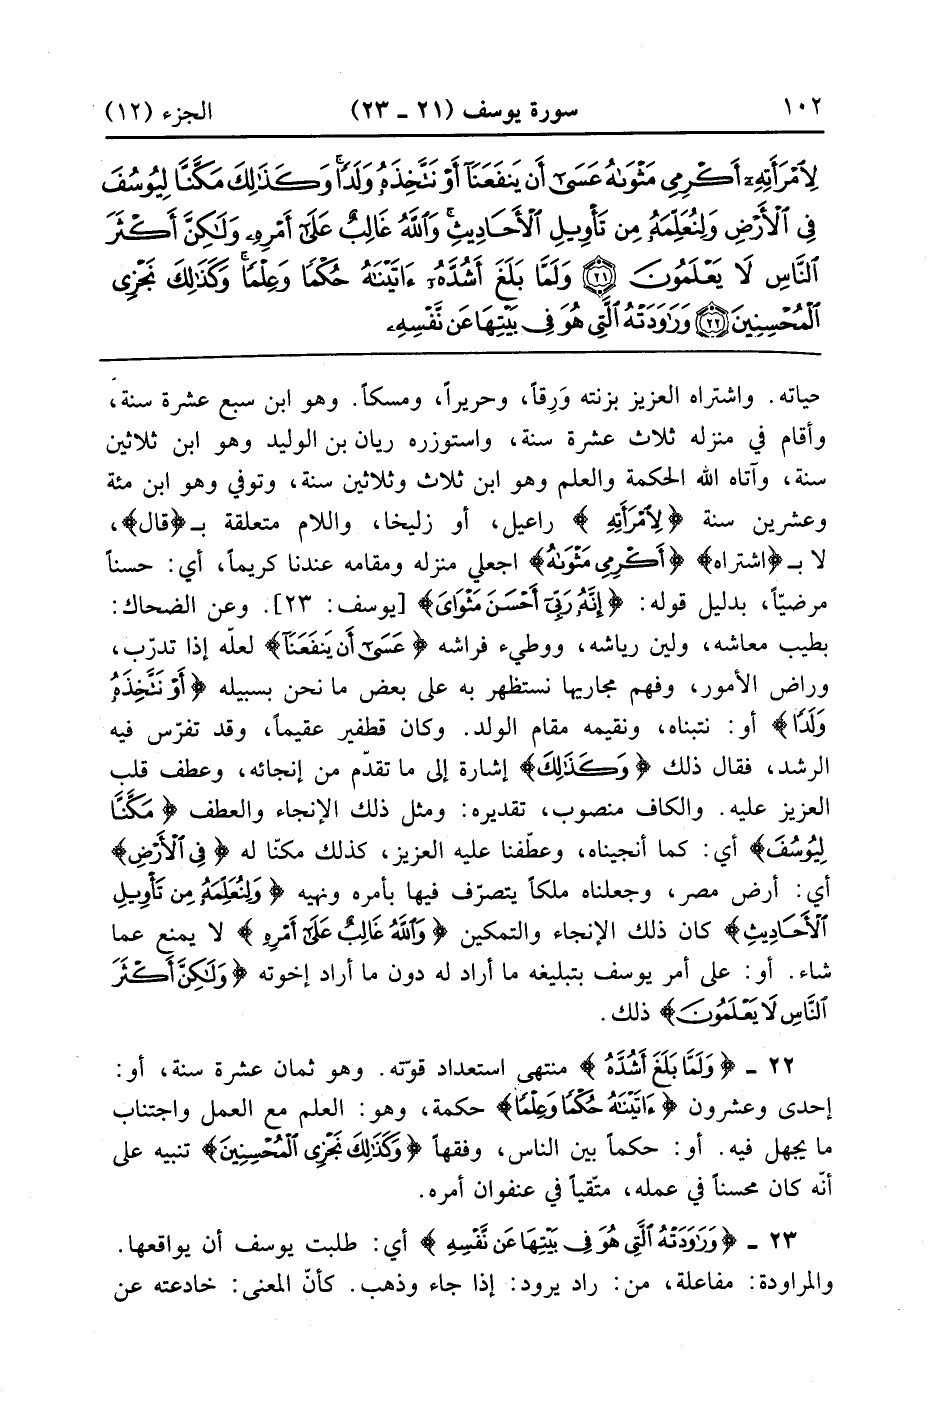 ١٠٢ سورة يوسف (٢١ ـ ٢٣) الجزء (١٢)
لِامْرَأَتِهِۦٓ أَكْرِمِى مَثْوَىٰهُ عَسَىٰٓ أَن يَنفَعَنَآ أَوْ نَتَّخِذَهُۥ وَلَدًا ۚ وَكَذَٰلِكَ مَكَّنَّا لِيُوسُفَ
فِى ٱلْأَرْضِ وَلِنُعَلِّمَهُۥ مِن تَأْوِيلِ ٱلْأَحَادِيثِ ۚ وَٱللَّهُ غَالِبٌ عَلَىٰٓ أَمْرِهِۦ وَلَـٰكِنَّ أَكْثَرَ
ٱلنَّاسِ لَا يَعْلَمُونَ ﴿٢١﴾ وَلَمَّا بَلَغَ أَشُدَّهُۥٓ ءَاتَيْنَـٰهُ حُكْمًا وَعِلْمًا ۚ وَكَذَٰلِكَ نَجْزِى
ٱلْمُحْسِنِينَ ﴿٢٢﴾ وَرَٰوَدَتْهُ ٱلَّتِى هُوَ فِى بَيْتِهَا عَن نَّفْسِهِۦ
حياته. واشتراه العزيز بزنته وَرِقاً، وحريراً، ومسكاً. وهو ابن سبع عشرة سنة،
وأقام في منزله ثلاث عشرة سنة، واستوزره ريان بن الوليد وهو ابن ثلاثين
سنة، وآتاه الله الحكمة والعلم وهو ابن ثلاث وثلاثين سنة، وتوفي وهو ابن مئة
وعشرين سنة ﴿لِامْرَأَتِهِ﴾ راعيل، أو زليخا، واللام متعلقة بـ﴿قال﴾،
لا بـ﴿اشتراه﴾ ﴿أَكْرِمِى مَثْوَىٰهُ﴾ اجعلي منزله ومقامه عندنا كريماً، أي: حسناً
مرضيّاً، بدليل قوله: ﴿إِنَّهُ رَبِّىٓ أَحْسَنَ مَثْوَاىَ﴾ [يوسف: ٢٣]. وعن الضحاك:
بطيب معاشه، ولين رياشه، ووطيء فراشه ﴿عَسَىٰٓ أَن يَنفَعَنَآ﴾ لعلّه إذا تدرّب،
وراض الأمور، وفهم مجاريها نستظهر به على بعض ما نحن بسبيله ﴿أَوْ نَتَّخِذَهُۥ
وَلَدًا﴾ أو: نتبناه، ونقيمه مقام الولد. وكان قطفير عقيماً، وقد تفرّس فيه
الرشد، فقال ذلك ﴿وَكَذَٰلِكَ﴾ إشارة إلى ما تقدّم من إنجائه، وعطف قلب
العزيز عليه. والكاف منصوب، تقديره: ومثل ذلك الإنجاء والعطف ﴿مَكَّنَّا
لِيُوسُفَ﴾ أي: كما أنجيناه، وعطّفنا عليه العزيز، كذلك مكنّا له ﴿فِى ٱلْأَرْضِ﴾
أي: أرض مصر، وجعلناه ملكاً يتصرّف فيها بأمره ونهيه ﴿وَلِنُعَلِّمَهُۥ مِن تَأْوِيلِ
ٱلْأَحَادِيثِ﴾ كان ذلك الإنجاء والتمكين ﴿وَٱللَّهُ غَالِبٌ عَلَىٰٓ أَمْرِهِ﴾ لا يمنع عما
شاء. أو: على أمر يوسف بتبليغه ما أراد له دون ما أراد إخوته ﴿وَلَـٰكِنَّ أَكْثَرَ
ٱلنَّاسِ لَا يَعْلَمُونَ﴾ ذلك.
٢٢ ـ ﴿وَلَمَّا بَلَغَ أَشُدَّهُۥٓ﴾ منتهى استعداد قوّته. وهو ثمان عشرة سنة، أو:
إحدى وعشرون ﴿ءَاتَيْنَـٰهُ حُكْمًا وَعِلْمًا﴾ حكمة، وهو: العلم مع العمل واجتناب
ما يجهل فيه. أو: حكماً بين الناس، وفقهاً ﴿وَكَذَٰلِكَ نَجْزِى ٱلْمُحْسِنِينَ﴾ تنبيه على
أنّه كان محسناً في عمله، متّقياً في عنفوان أمره.
٢٣ ـ ﴿وَرَٰوَدَتْهُ ٱلَّتِى هُوَ فِى بَيْتِهَا عَن نَّفْسِهِ﴾ أي: طلبت يوسف أن يواقعها.
والمراودة: مفاعلة، من: راد يرود: إذا جاء وذهب. كأنّ المعنى: خادعته عن